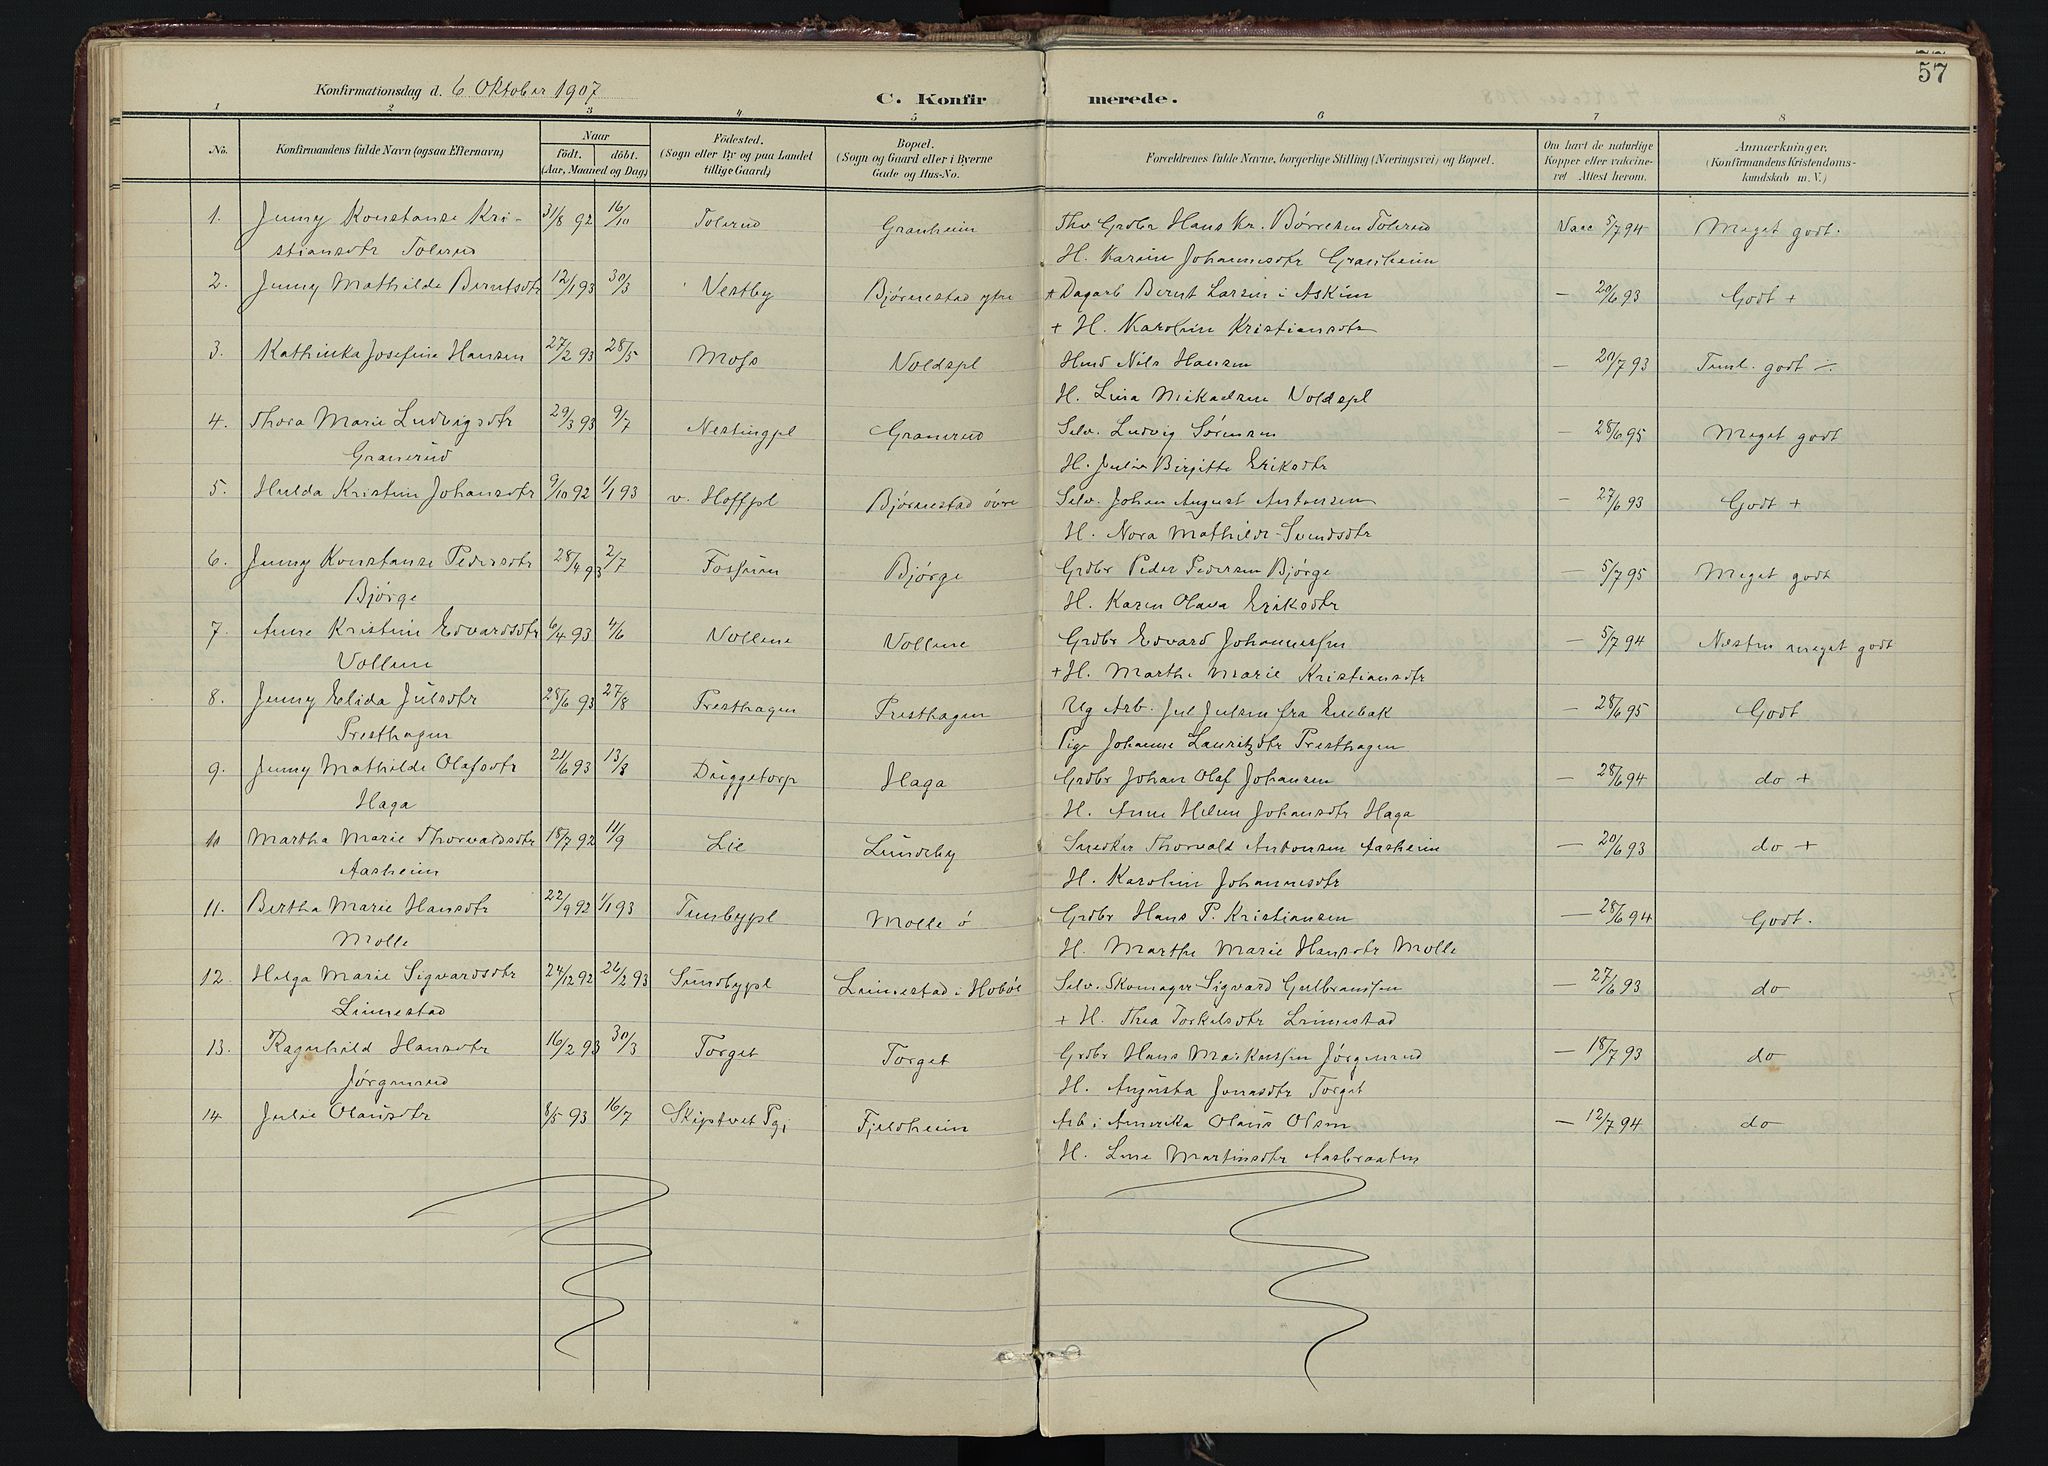 57
Konfirmationsdag d. 6 Oktober 1907
C. Konfirmerede.
1 2 3 4 5 6 7 8
No. Konfirmandens fulde Navn (ogsaa Efternavn) Naar födt. döbt. (Aar, Maaned og Dag) Födested. (Sogn eller By og paa Landet tillige Gaard) Bopæl. (Sogn og Gaard eller i Byerne Gade og Hus-No. Forældrenes fulde Navne, borgerlige Stilling (Næringsvei) og Bopæl. Om havt de naturlige Kopper eller vakcineret Attest herom. Anmærkninger. (Konfirmandens Kristendomskundskab m. V.)
1. Jenny Konstanse Kri- 31/8 92 16/10 Tolerud Granheim Grdbr Hans Kr. Børresen Tolerud Vacc 5/7 94 Meget godt.
stiansdtr Tolerud H. Karin Johannesdtr Granheim
2. Jenny Mathilde Berntsdtr 12/1 93 30/3 Vestby Bjørnestad ytre + Dagarb Bernt Larsen i Askim — 20/6 93 Godt +
+ H. Karolin Kristiansdtr
3. Kathinka Josefine Hansen 27/2 93 28/5 Moss Voldspl Hmd Nils Hansen — 20/7 93 Teml. godt ÷
H. Lina Mikaelsen Voldspl
4. Thora Marie Ludvigsdtr 29/3 93 9/7 Nestingpl Granerud Selv. Ludvig Sørensen — 28/6 95 Meget godt
Granerud H. Julie Birgitte Eriksdtr
5. Hulda Kristin Johansdtr 9/10 92 1/1 93 v. Hoffpl Bjørnestad øvre Selv. Johan August Antonsen — 27/6 93 Godt +
H. Nora Mathilde Svendsdtr
6. Jenny Konstanse Pedersdtr 28/4 93 2/7 Fossum Bjørge Grdbr Peder Pedersen Bjørge — 5/7 95 Meget godt
Bjørge H. Karen Olava Eriksdtr
7. Anne Kristine Edvardsdtr 6/4 93 4/6 Vollene Vollene Grdbr Edvard Johannessen — 5/7 94 Næsten meget godt
Vollene + H. Marthe Marie Kristiansdtr
8. Jenny Elida Julsdtr 28/6 93 27/8 Presthagen Presthagen Ug Arb. Jul Julsen fra Enebak — 28/6 95 Godt
Presthagen Pige Johanne Lauritzdtr Presthagen
9. Jenny Mathilde Olafsdtr 21/6 93 13/8 Duggetorp Haga Grdbr Johan Olaf Johansen — 28/6 94 do +
Haga H. Anne Helene Johansdtr Haga
10 Martha Marie Thorvaldsdtr 18/7 92 11/9 Lie Lundeby Snedker Thorvald Antonsen Aasheim — 20/6 93 do +
Aasheim H. Karolin Johannesdtr
11. Bertha Marie Hansdtr 22/9 92 1/1 93 Tunbypl Molle ø Grdbr Hans P. Kristiansen — 28/6 94 Godt.
Molle H. Marthe Marie Hansdtr Molle
12. Helga Marie Sigvardsdtr 24/12 92 26/2 93 Sundbypl Linnestad i Hobøl Selv. Skomager Sigvard Gulbransen — 27/6 93 do
Linnestad + H. Thea Torkelsdtr Linnestad
13. Ragnhild Hansdtr 16/2 93 30/3 Torget Torget Grdbr Hans Markussen Jørgenrud — 18/7 93 do
Jørgenrud H. Augusta Jonasdtr Torget
14. Julie Olausdtr 8/5 93 16/7 Skiptvet Pg. Fjeldheim Arb i Amerika Olaus Olsen — 12/7 94 do
H. Line Martinsdtr Aasbraaten